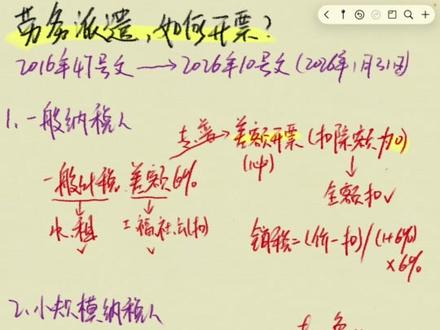 劳务派遣,如何开票?
2016年47号文 → 2026年10号文(2026年1月31日)
1、一般纳税人
专普→差额开票(扣除额为0)
(1种) ↓
一般计税 差额6% 全额扣✓
↓ ↓
工福社公(扣) 销税=(价-扣)/(1+6%)
×6%
2、小规模纳税人